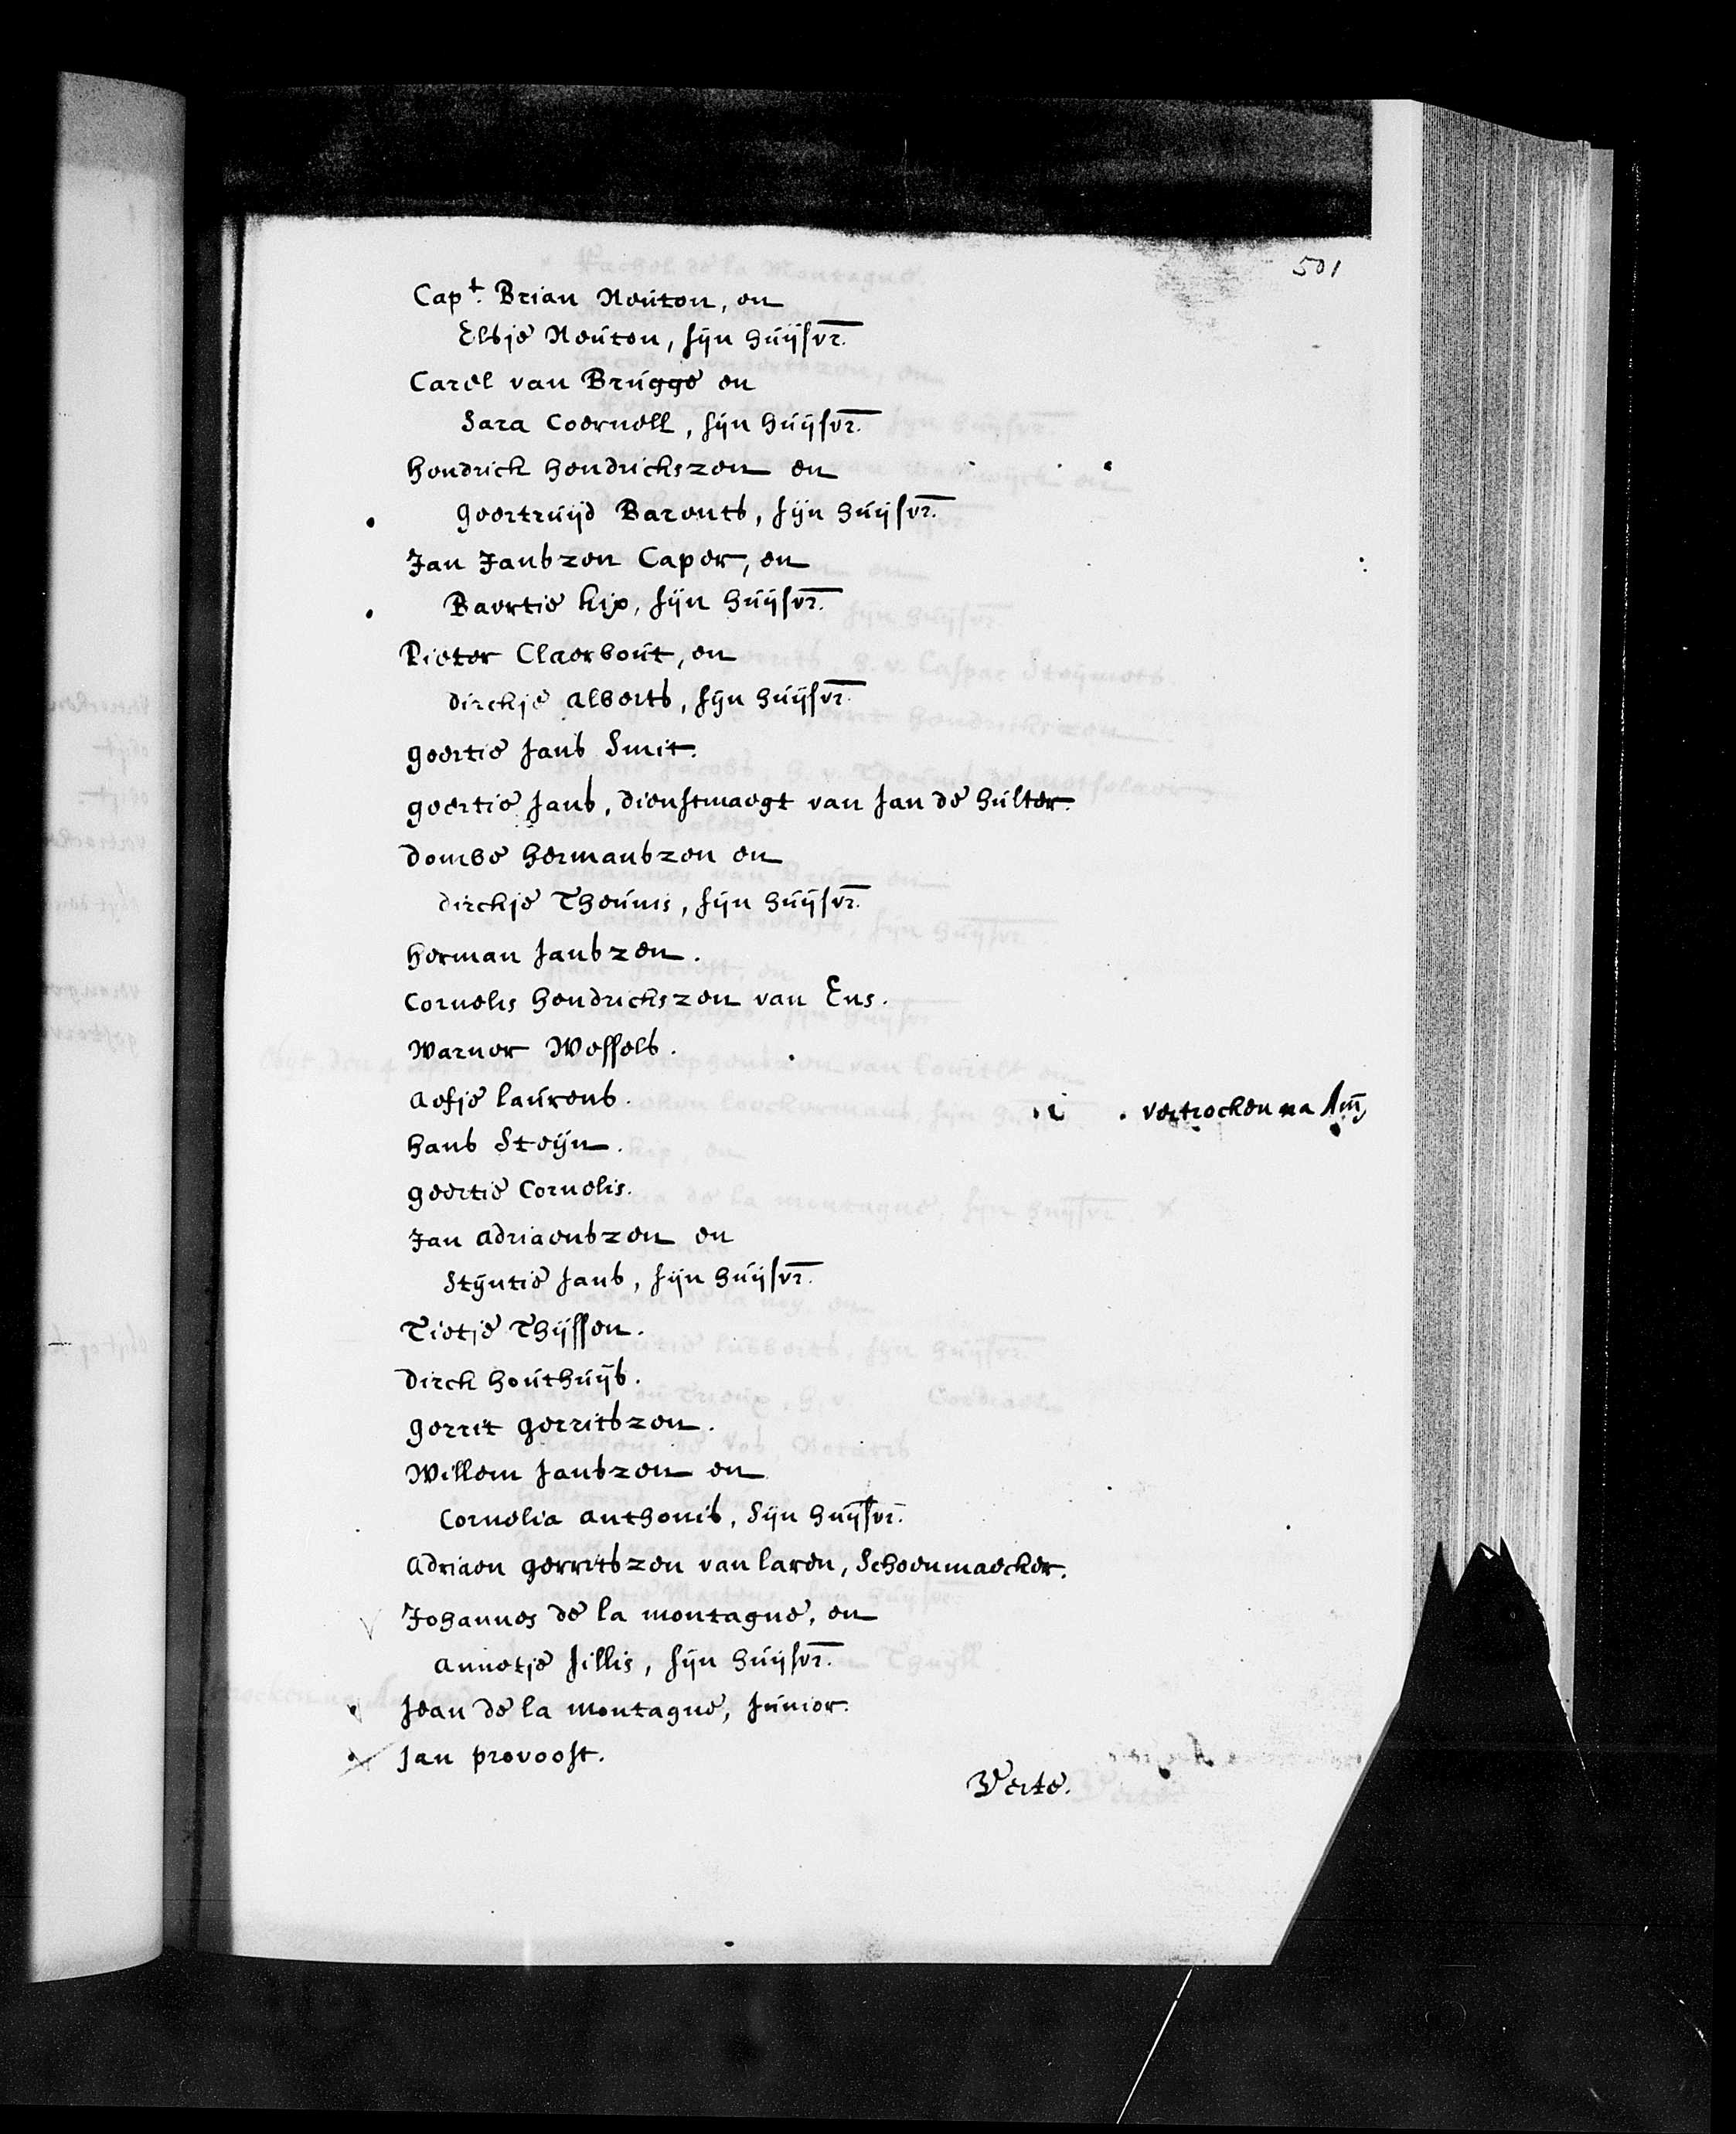 501
Capt. Brian Neúton, en
Elsje Neúton, sijn húijsvr.
Carel van Brúgge en
Sara Coernell, sijn húijsvr.
Hendrick Hendrickszen en
Geertruijd Barents, sijn húijsvr.
Jan Janszen Caper, en
Baertie kip, sijn húijsvr.
Pieter Claerboút, en
Dirckje Alberts, sijn húijsvr.
Geertie Jans Smit.
Geertie Jans, dienstmaegt van Jan de húlter.
Douwe Hermanszen en
Dirckje Theúnis, sijn húijsvr.
Herman Janszen.
Cornelis Hendrickszen van Ens.
Warner Wessels.
Aefje laúrens. vertrocken na Am
Hans Steijn.
Geertie Cornelis.
Jan Adriaenszen en
Stijntie Jans, sijn húijsvr.
Tietje Thijssen.
Dirck Hoúthúijs.
Gerrit Gerritszen.
Willem Janszen en
Cornelia Anthonis, Sijn húijsvr.
Adriaen Gerritszen van laren, Schoenmaecker.
Johannes de la montagne, en
Annetje Jillis, sijn húijsvr.
Jean de la montagne, Júnior.
Jan provoost.
Verte.